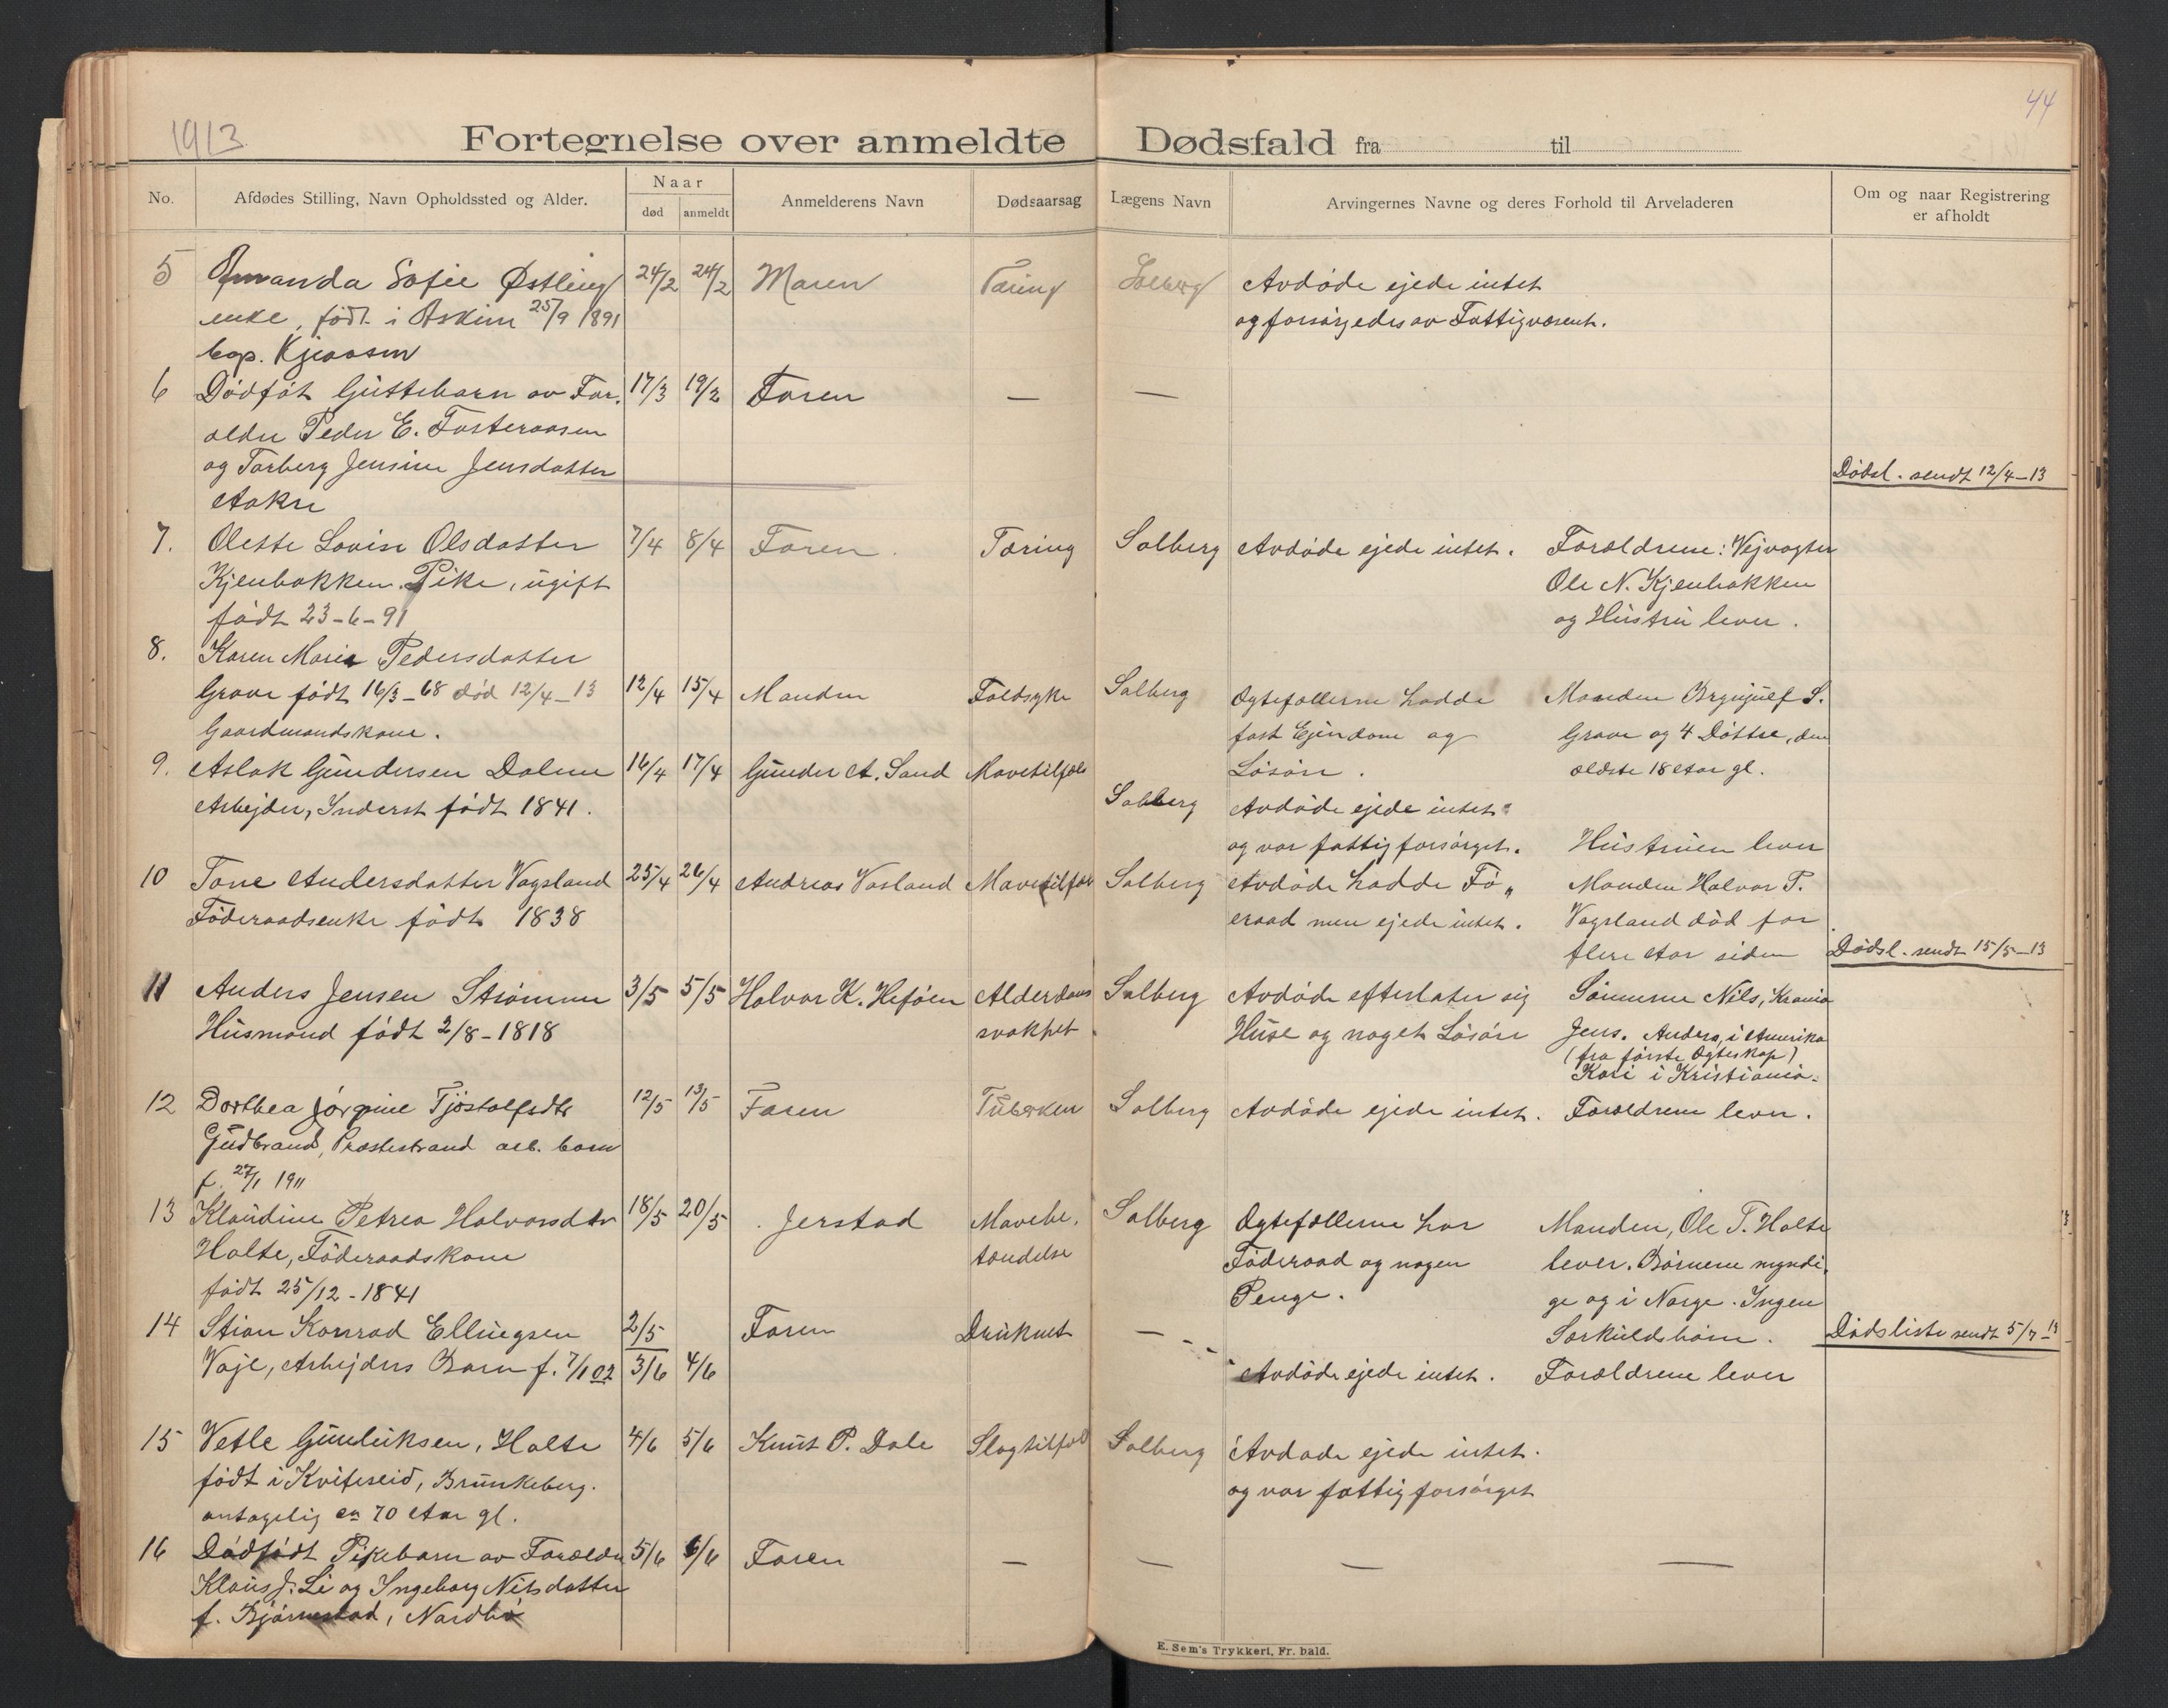 44
1913
Fortegnelse over anmeldte Dødsfald fra til
No.
Afdødes Stilling, Navn Opholdssted og Alder.
Naar
død
anmeldt
Anmelderens Navn
Dødsaarsag
Lægens Navn
Arvingernes Navne og deres Forhold til Arveladeren
Om og naar Registrering
er afholdt
5 Amanda Sofie Østling 24/2 24/2 Maren Tæring Solberg Avdøde ejede intet
enke, født i Askim 25/9 1891 og forsørgedes av Fattigvæsent.
bop. Kjenaasen
6 Dødføt Guttebarn av For. 17/3 19/3 Faren — —
ældre Peder E. Fosteraasen
og Torberg Jensine Jensdatter
Aakre
Dødsl. sendt 12/4-13
7. Olette Lovise Olsdatter 7/4 8/4 Faren. Tæring Solberg Avdøde ejede intet. Forældrene: Vejvogter
Kjenbakken. Pike, ugift Ole N. Kjenbakken
født 23-6-91 og Hustru lever.
8. Karen Marie Pedersdatter
Grave født 16/3-68 død 12/4-13 12/4 15/4 Manden Faldsyke Solberg Ogtefællerne hadde Manden Brynjulf S.
Gaardmandskone. fast Ejendom og Grave og 4 Døttre, den
Løsøre. ældste 18 Aar gl.
9. Aslak Gundersen Dalene 16/4 17/4 Gunder A. Sand Mavetilfæle
Arbejder, Inderst født 1841. Solberg Avdøde ejede intet
og var fattigforsørget. Hustruen lever
10 Tone Andersdatter Vagsland 25/4 26/4 Andreas Vasland Mavetilfæl Solberg Avdøde hadde Fø„ Manden Halvor T.
Føderaadsenke født 1838 eraad men ejede intet. Vagsland død for
flere Aar siden
Dødsl. sendt 15/5-13
11 Anders Jensen Strømme 3/5 5/5 Halvor K. Heføen Alderdoms Solberg Avdøde efterlater sig Sønnerne Nils, Krania
Husmand født 2/8-1818 svakhet. Huse og noget Løsøre Jens. Anders, i Amerika
(fra første Ogteskap)
Kari i Kristiania.
12 Dorthea Jørgine Tjøstolfsdtr 12/5 13/5 Faren Tuberken Solberg Avdøde ejede intet. Forældrene lever.
Gudbrand, Præstestrand arb. barn
f. 27/1 1911
13 Klaudine Petrea Halvorsdtr 18/5 20/5 . Jerstad Mavebe. Solberg Ogtefællerne har Manden, Ole T. Holte
Holte, Føderaadskone tændelse Føderaad og nogen lever. Børnene myndi.
født 25/12-1841 Penge. ge og i Norge. Ingen
Særkuldsbørn.
14 Stian Konrad Ellingsen 2/5 Faren Druknet —
Dødsliste sendt 5/7-13
Vaje, Arbejders Barn f. 7/1 02 3/6 4/6 Avdøde ejede intet. Forældrene lever
15 Vetle Gunleiksen, Holte 4/6 5/6 Knut P. Dale Slagtilfæl Solberg Avdøde ejede intet.
født i Kviteseid, Brunkeberg. og var fattigforsørget
antagelig ca 70 Aar gl.
16 Dødfødt Pikebarn av Forældre 5/6 6/6 Faren — — — —
Klaus J. Li og Ingeborg Nilsdatter
f. Bjørnestad, Nordbø
E. Sem's Trykkeri, Fr. hald.